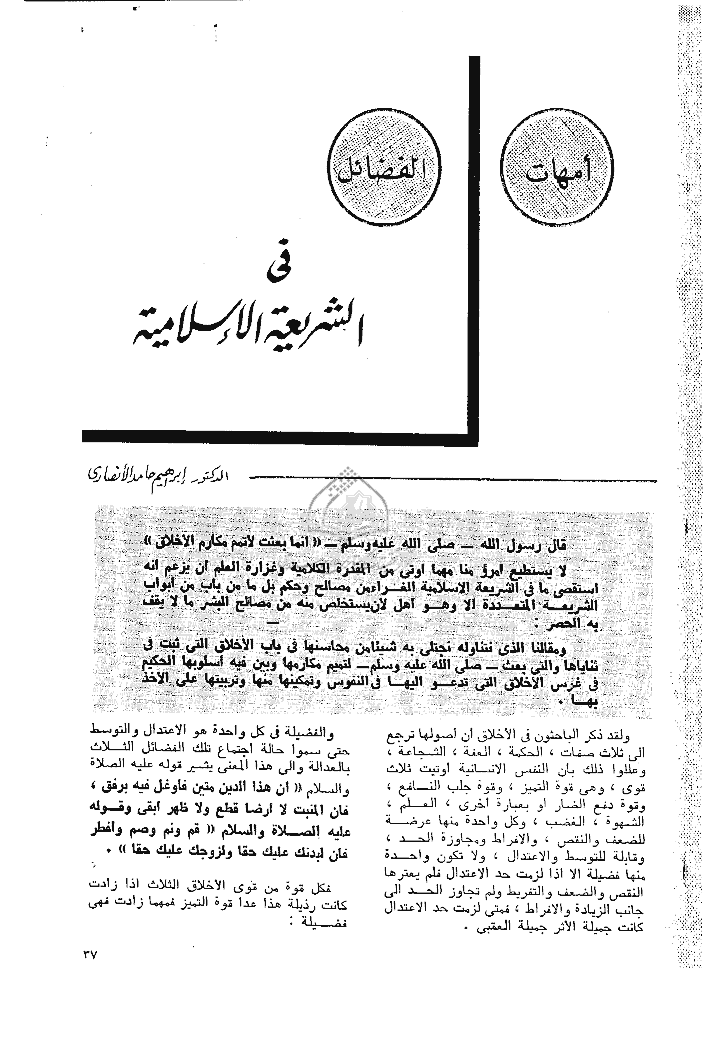 أمهات
الفضائل
فى
الشريعة الإسلامية
الدكتور إبراهيم حامد الأنصارى
قال رسول الله — صلى الله عليه وسلم — « انما بعثت لاتمم مكارم الأخلاق »
لا يستطيع امرؤ منا مهما اوتى من المقدرة الكلامية وغزارة العلم أن يزعم انه
استقصى ما فى الشريعة الاسلامية الغراء من مصالح وحكم بل ما من باب من أبواب
الشريعة المتعددة الا وهو أهل لأن يستخلص منه من مصالح البشر ما لا يقف
به الحصر :
ومقالنا الذى نتناوله نجتلى به شيئا من محاسنها فى باب الأخلاق التى ثبت فى
ثناياها والتى بعث — صلى الله عليه وسلم — لتميم مكارمها وبين فيه أسلوبها الحكيم
فى غرس الأخلاق التى تدعو اليها فى النفوس وتمكينها منها وتربيتها على الأخذ
بها .
ولقد ذكر الباحثون فى الأخلاق أن أصولها ترجع
الى ثلاث صفات ، الحكمة ، العفة ، الشجاعة ،
وعللوا ذلك بأن النفس الانسانية أوتيت ثلاث
قوى ، وهى قوة التميز ، وقوة جلب النافع ،
وقوة دفع الضار أو بعبارة أخرى ، العلم ،
الشهوة ، الغضب ، وكل واحدة منها عرضة
للضعف والنقص ، والافراط ومجاوزة الحد ،
وقابلة للتوسط والاعتدال ، ولا تكون واحدة
منها فضيلة الا اذا لزمت حد الاعتدال فلم يعترها
النقص والضعف والتفريط ولم تجاوز الحد الى
جانب الزيادة والافراط ، فمتى لزمت حد الاعتدال
كانت جميلة الأثر جميلة العقبى .
والفضيلة فى كل واحدة هو الاعتدال والتوسط
حتى سموا حالة اجتماع تلك الفضائل الثلاث
بالعدالة والى هذا المعنى يشير قوله عليه الصلاة
والسلام « ان هذا الدين متين فأوغل فيه برفق ،
فان المنبت لا ارضا قطع ولا ظهر ابقى وقوله
عليه الصلاة والسلام « قم ونم وصم وافطر
فان لبدنك عليك حقا ولزوجك عليك حقا » .
فكل قوة من قوى الأخلاق الثلاث اذا زادت
كانت رذيلة هذا عدا قوة التميز فمهما زادت فهى
فضيلة :
٣٧